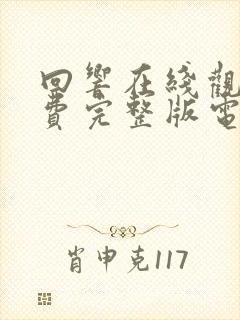 回響在綫觀
費完整版電
肖申克117